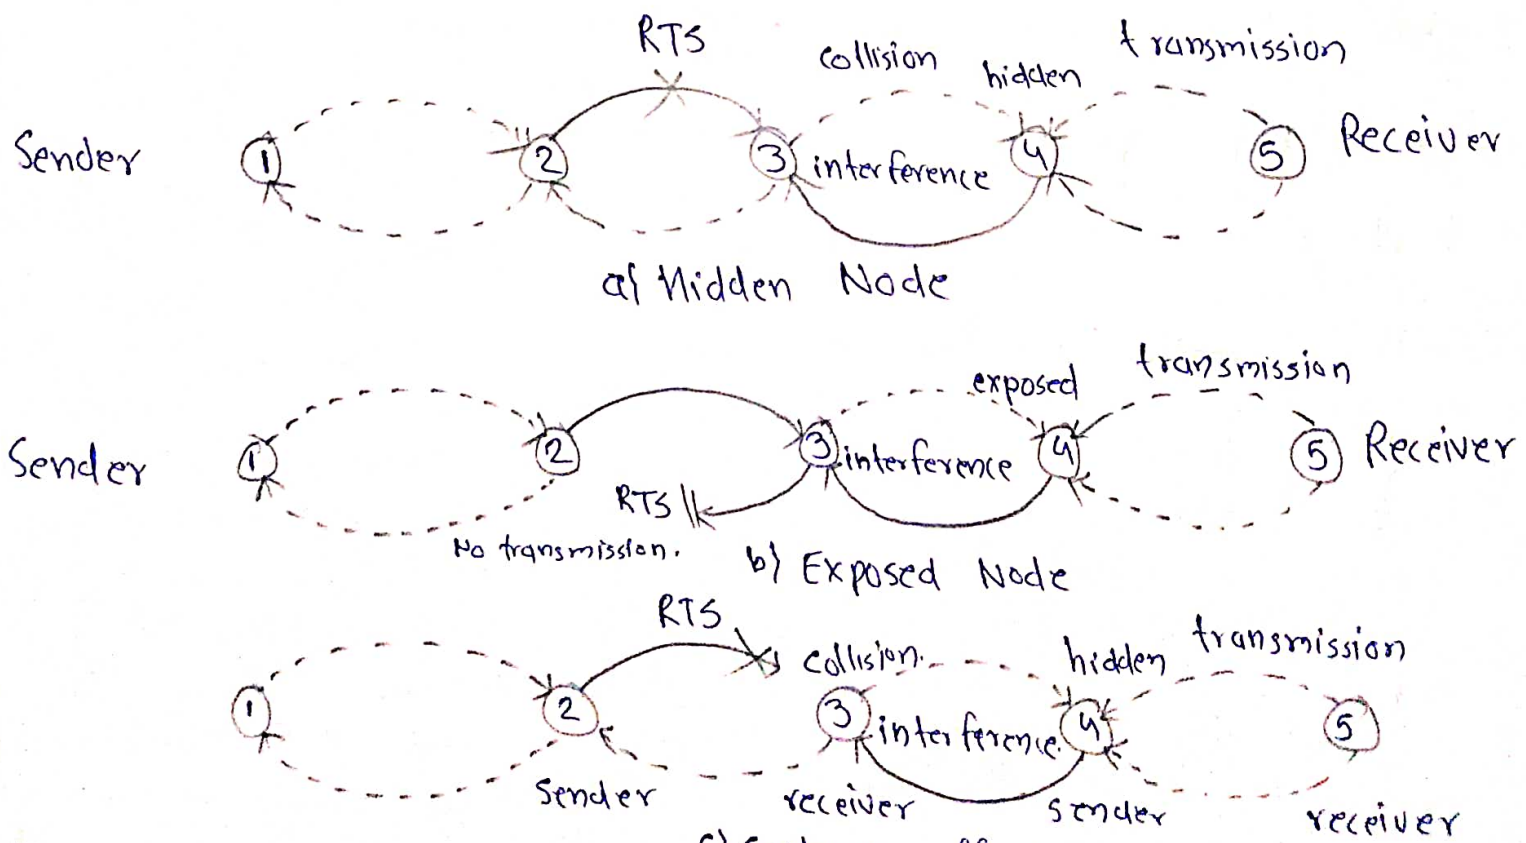 RTS
collision hidden transmission
Sender 1 2 3 interference 4 5 Receiver
a) Hidden Node
exposed transmission
Sender 1 2 3 interference 4 5 Receiver
RTS
No transmission.
b) Exposed Node
RTS
collision. hidden transmission
1 2 3 interference. 4 5
sender receiver sender receiver